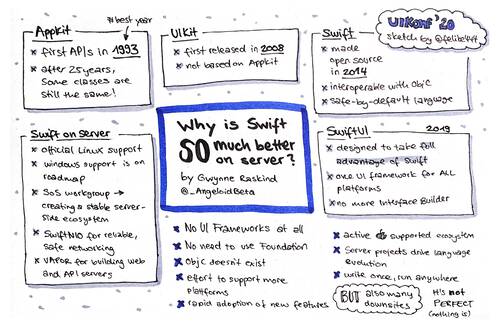 AppKit
#1 best year
first APIs in 1993
after 25 years,
some classes are
still the same!
UIKit
first released in 2008
not based on AppKit
Swift
made
open source
in 2014
interoperable with ObjC
safe-by-default language
UIKonf '20
sketch by @felibe444
Swift on Server
official Linux support
windows support is on
roadmap
SoS workgroup →
creating a stable server-
side ecosystem
SwiftNIO for reliable,
safe networking
VAPOR for building web
and API servers
Why is Swift
SO much better
on server?
by Gwynne Raskind
@_AngeloidBeta
SwiftUI
2019
designed to take full
advantage of Swift
one UI framework for ALL
platforms
no more Interface Builder
No UI Frameworks at all
No need to use Foundation
ObjC doesn't exist
effort to support more
platforms
rapid adoption of new features
active & supported ecosystem
Server projects drive language
evolution
write once, run anywhere
BUT also many
downsites
It's not
PERFECT
(nothing is)